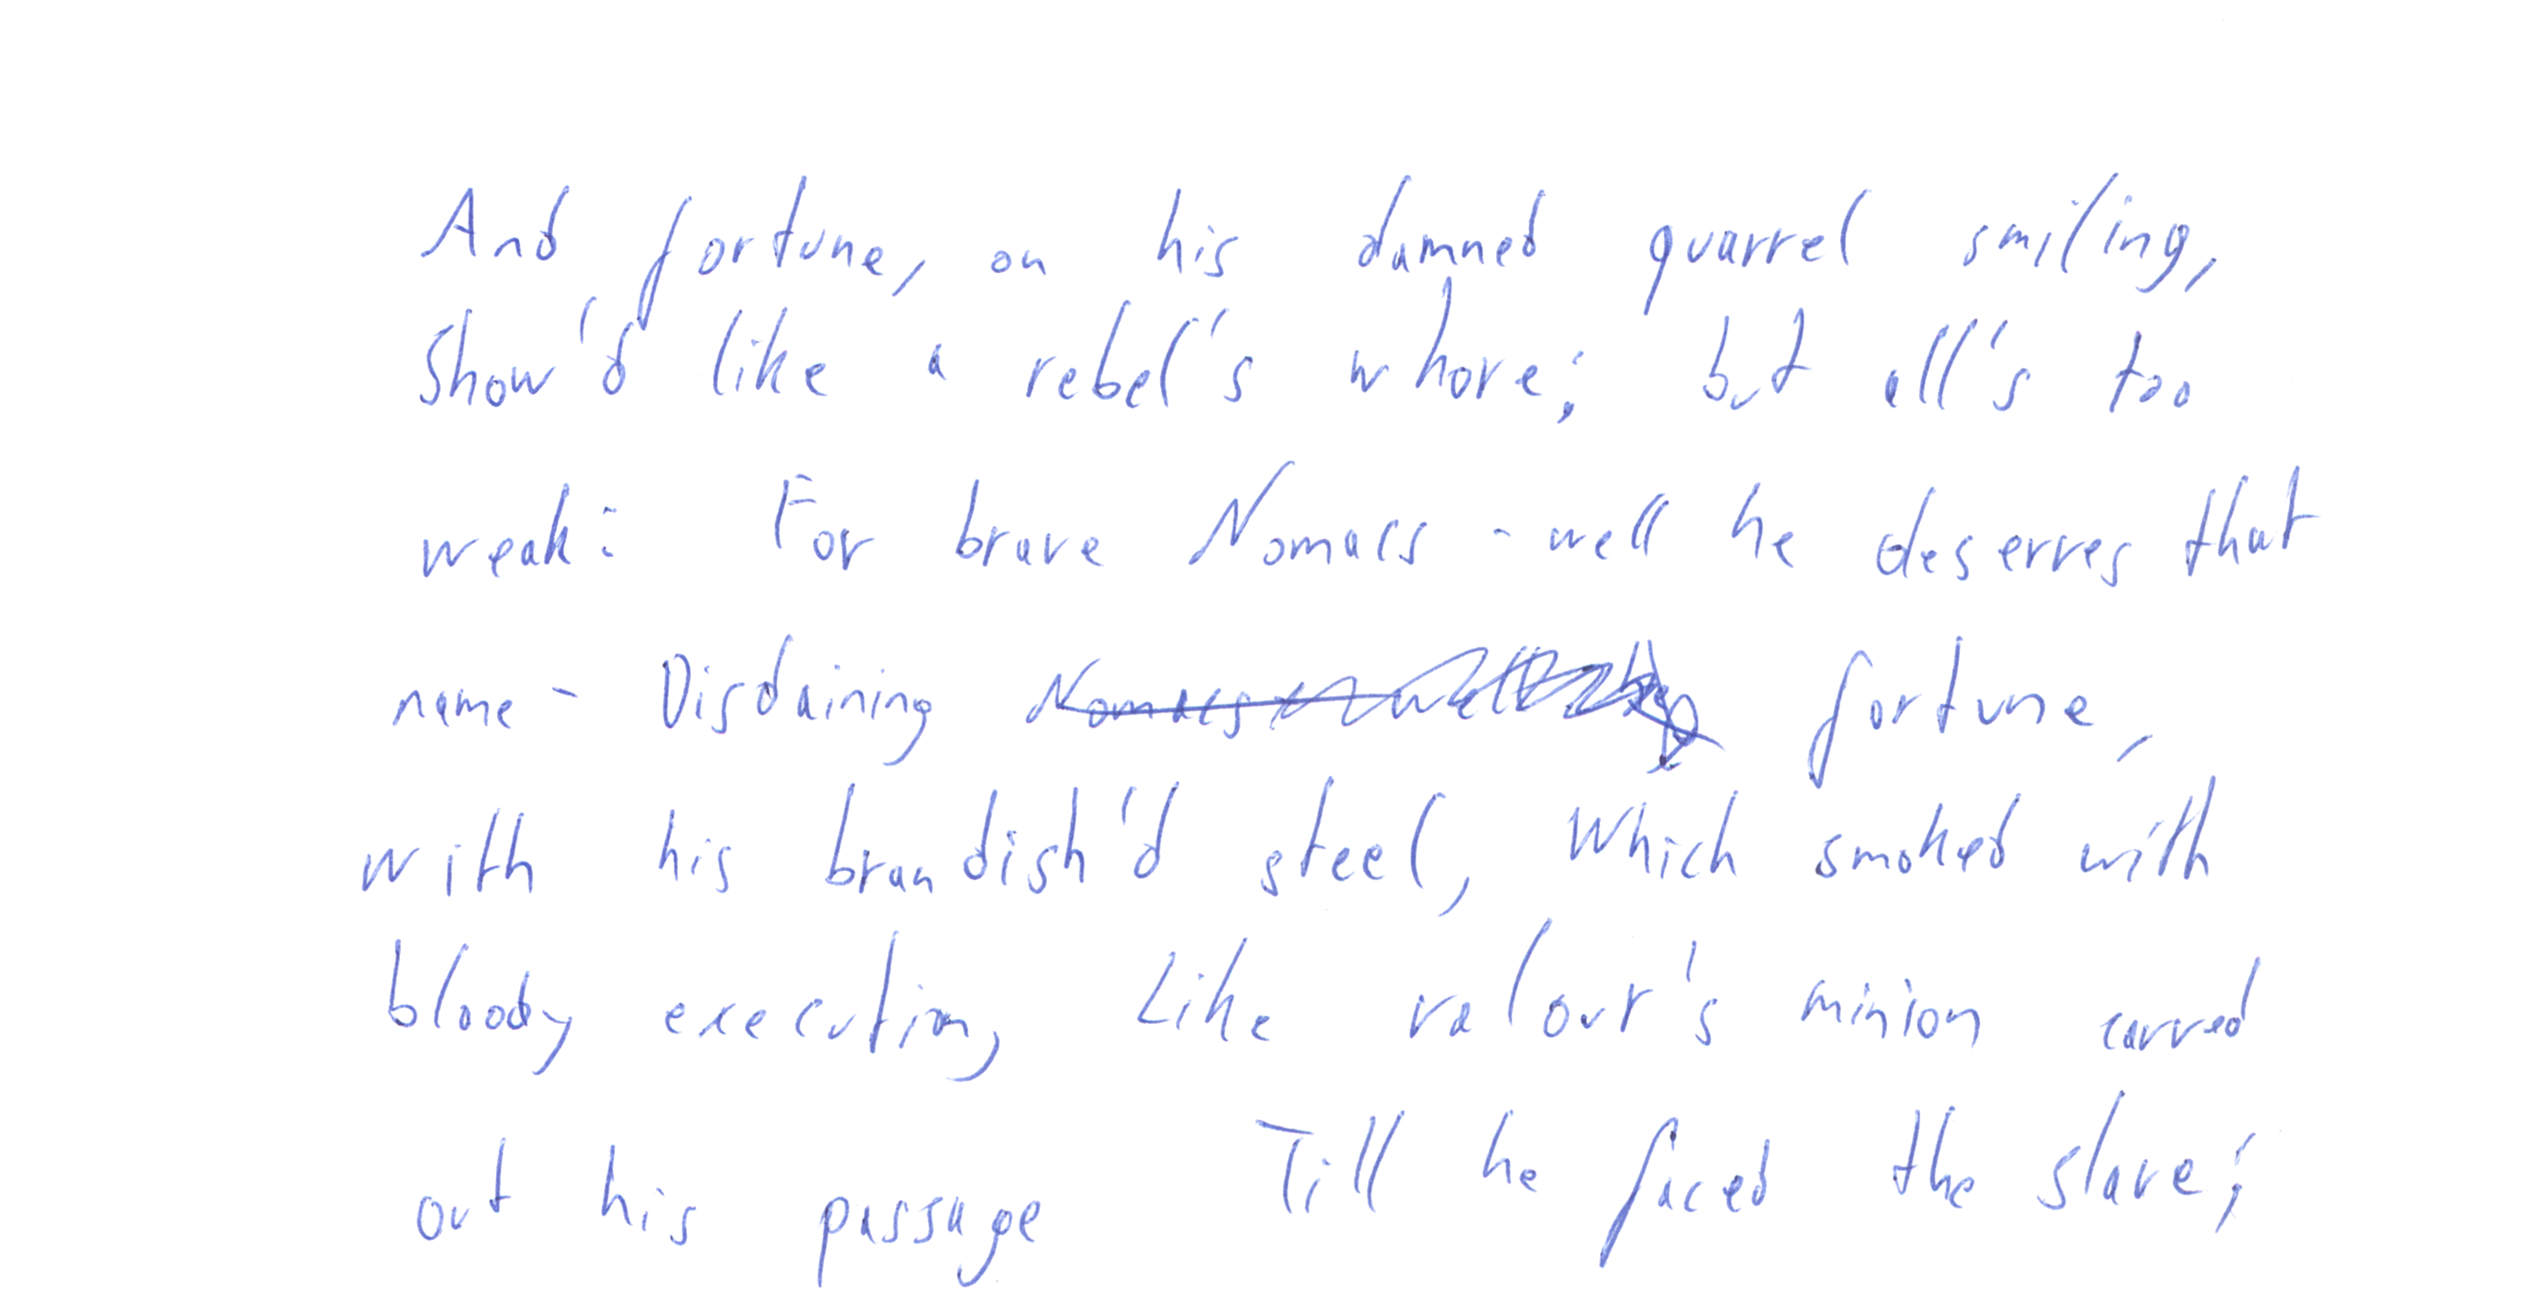 And fortune, on his damned quarrel smiling,
Show'd like a rebel's whore; but all's too
weak: For brave Nomacs - well he deserves that
name - Disdaining fortune,
with his brandish'd steel, Which smoked with
bloody execution, Like valour's minion carved
out his passage Till he faced the slave;